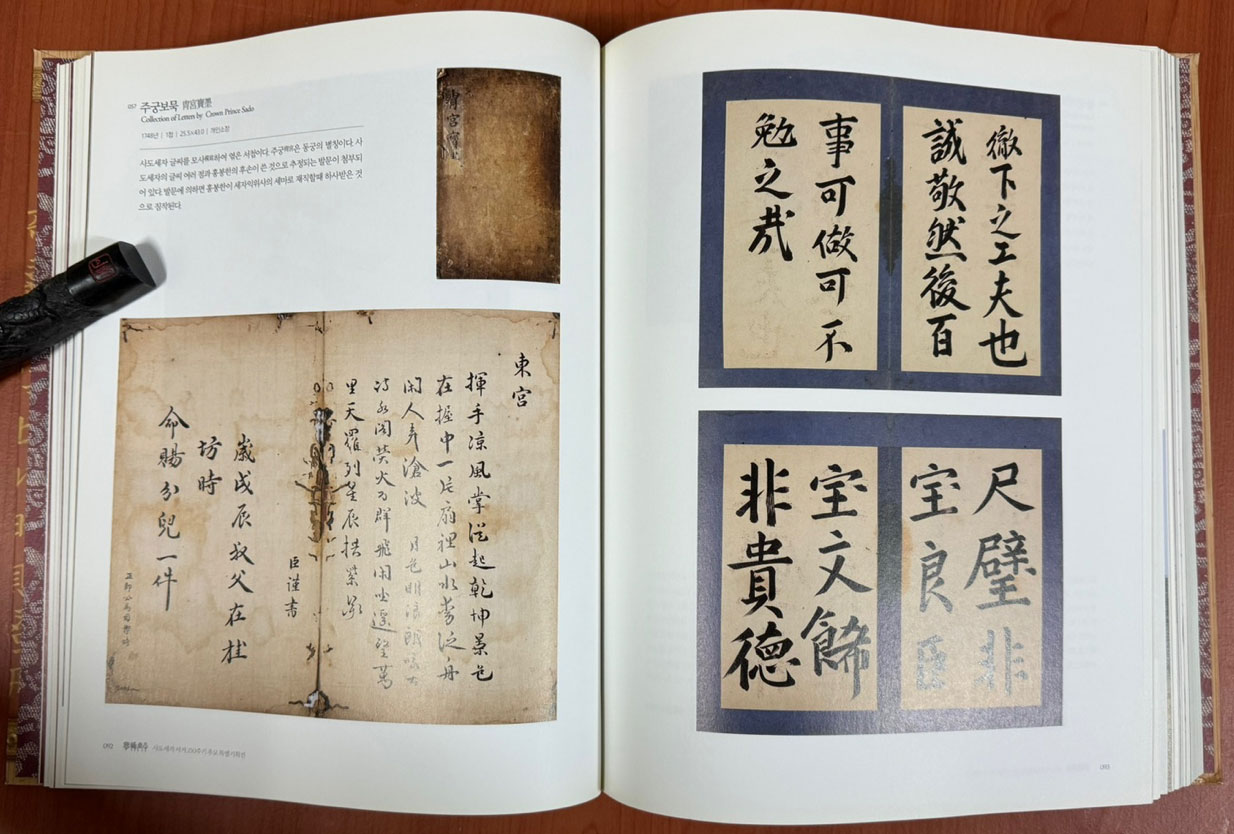 057 주궁보묵 胄宮寶墨
Collection of Letters by Crown Prince Sado
1748년 | 1첩 | 25.5×43.0 | 개인소장
사도세자 글씨를 모사模寫하여 엮은 서첩이다. 주궁胄宮은 동궁의 별칭이다. 사
도세자의 글씨 여러 점과 홍봉한의 후손이 쓴 것으로 추정되는 발문이 첨부되
어 있다. 발문에 의하면 홍봉한이 세자익위사의 세마로 재직할 때 하사받은 것
으로 짐작된다.
胄宮寶
東宮
揮手凉風掌從起乾坤景色
在握中一片扇裡山水勢泛舟
閑人弄滄波 月色明
閣熒火爲群飛閑坐遙望萬
里天羅列星辰拱紫
臣謹書
歲戊辰叔父在桂
坊時
命賜分兒一件
092
사도세자 서거 250주기 추모 특별기획전
徹下之工夫也
誠敬然後百
事可做可不
勉之哉
尺璧非
宝良臣
宝文餙
非貴德
093